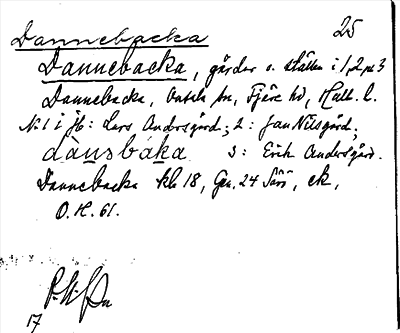 25
Dannebacka
Dannebacka, gårdar o. ställen i 1, 2, o. 3
Dannebacka, Onsala sn, Fjäre hd, Hall. l.
N:o 1 i Jb: Lars Andersgård; 2: Jan Nilsgård;
dànsbáka 3: Erik Andersgård.
Dannebacka kbl 18, Gen. 24 Särö, ek,
O.H. 61.
17